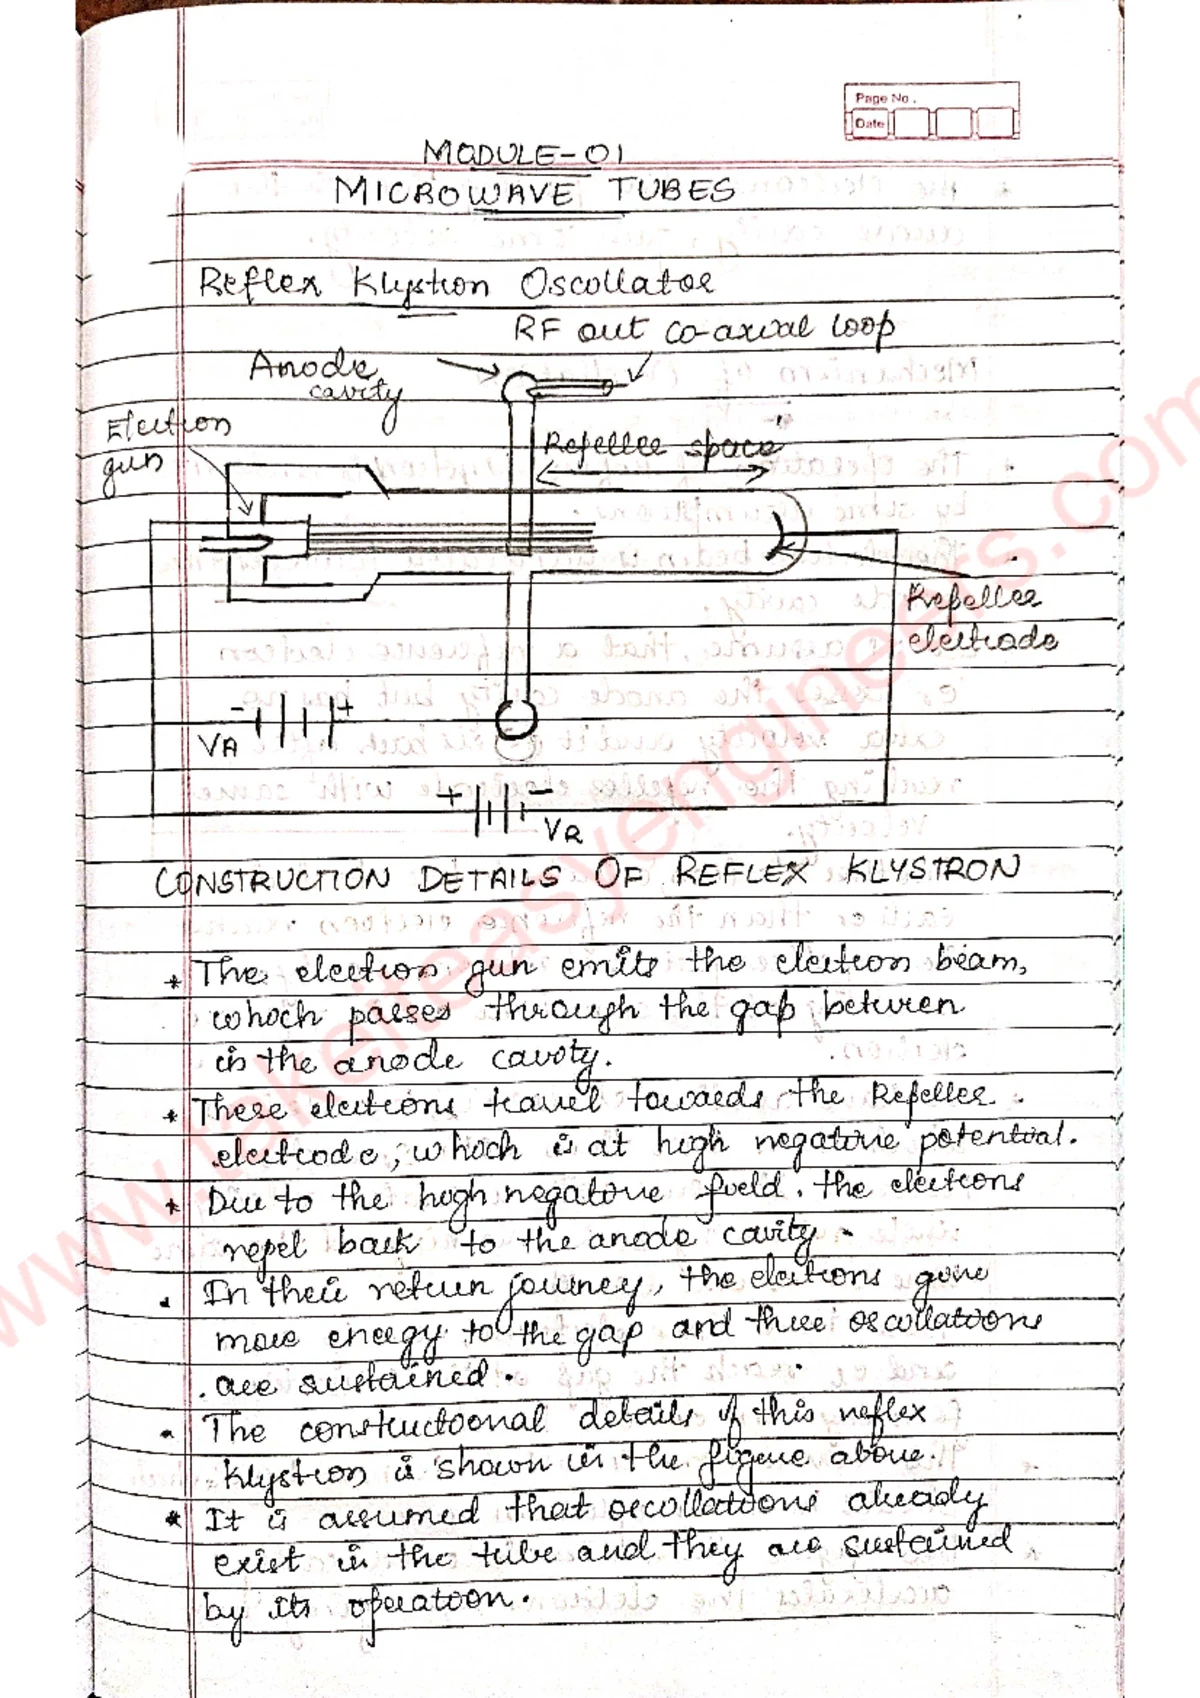 Page No.
Date
MODULE-01
MICROWAVE TUBES
Reflex Klystron Oscillator
RF out co-axial loop
Anode
cavity
Electron
gun
Repeller space
Repeller
electrode
- +
VA
+ -
VR
CONSTRUCTION DETAILS OF REFLEX KLYSTRON
* The electron gun emits the electron beam,
which passes through the gap between
in the anode cavity.
* These electrons travel towards the Repeller
electrode, which is at high negative potential.
* Due to the high negative field. the electrons
repel back to the anode cavity.
. In their return journey, the electrons give
more energy to the gap and these oscillations
are sustained.
. The constructional details of this reflex
klystron is shown in the figure above.
* It is assumed that oscillations already
exist in the tube and they are sustained
by its operation.
www.takeiteasyengineers.com